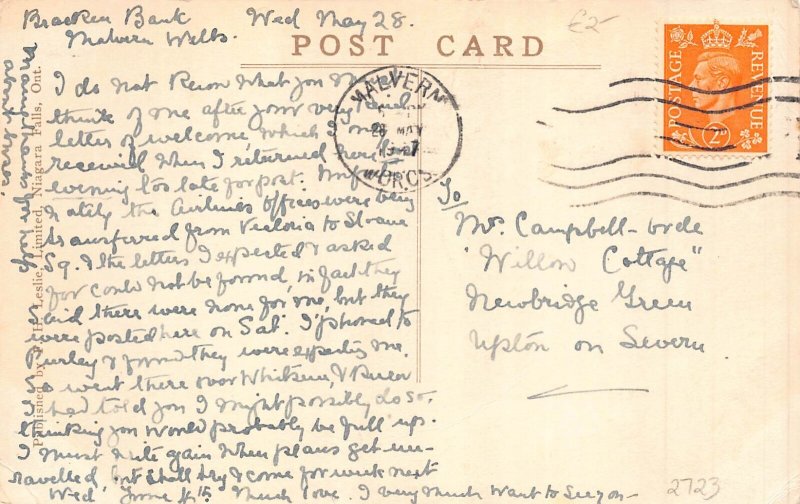 Bracken Bank Wed May 28.
Malvern Wells.
£2-
POST CARD
I do not know what you must
think of me after your very kind
letter of welcome, which I only
received when I returned here
evening too late for post.
the Airlines offices were being
transferred from Victoria to Sloane
Sq. & the letters I expected & asked
for could not be found, in fact they
said there were none for me, but they
were posted here on Sat. I 'phoned to
Purley & found they were expecting me.
So went there over Whitsun, & knew
I had told you I might possibly do so.
thinking you would probably be full up.
I must write again when plans get un-
ravelled, but shall try & come for week next
Wed June 4th. Much love. I very much want to see you -
MALVERN
28 MAY
WORCS
POSTAGE
REVENUE
2D
To
Mrs Campbell-
"Willow Cottage"
Newbridge Green
Upton on Severn.
2723
Published by F. H. Leslie, Limited, Niagara Falls, Ont.